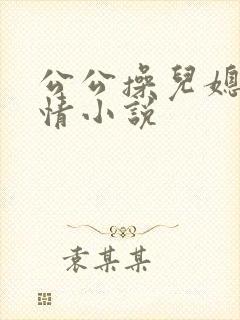 公公操兒媳
情小說
袁某某